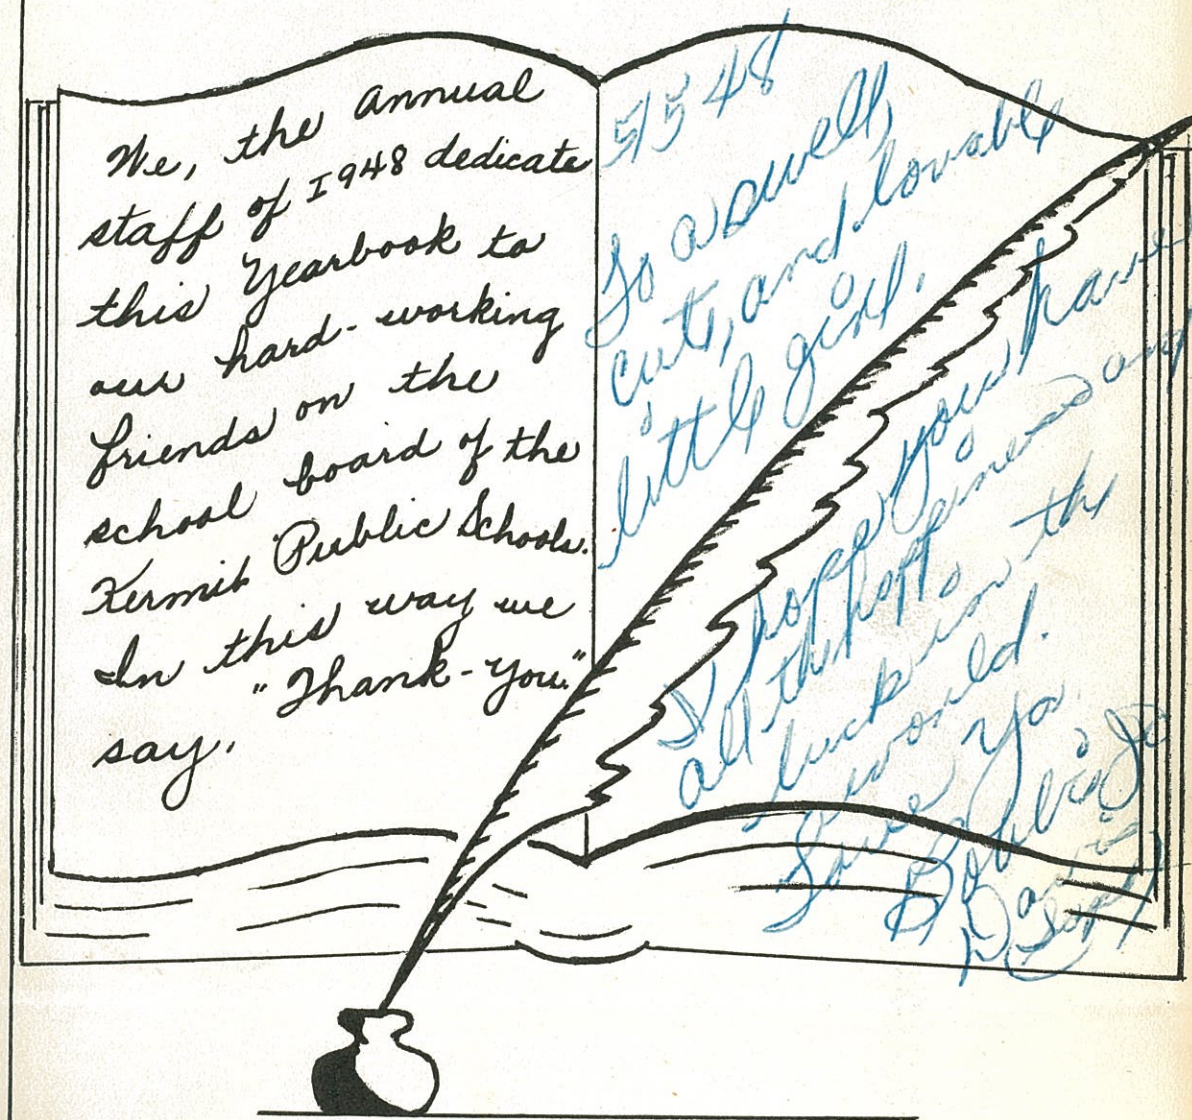 We, the Annual
staff of 1948 dedicate
this Yearbook to
our hard-working
friends on the
school board of the
Kermit Public Schools.
In this way we
"Thank-You."
say,
5/5 48
To a swell,
cute, and lovable
little girl.
I hope you have
all the happiness and
luck in the
world.
Love Ya
Bobbie Jo
Davis